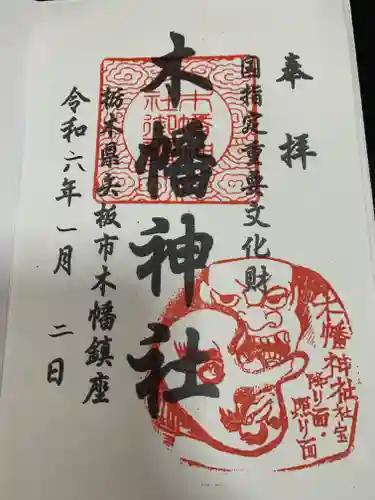 奉拝
国指定重要文化財
木幡神社
栃木県矢板市木幡鎮座
令和六年一月二日
木幡神社社宝
降り面・照り面